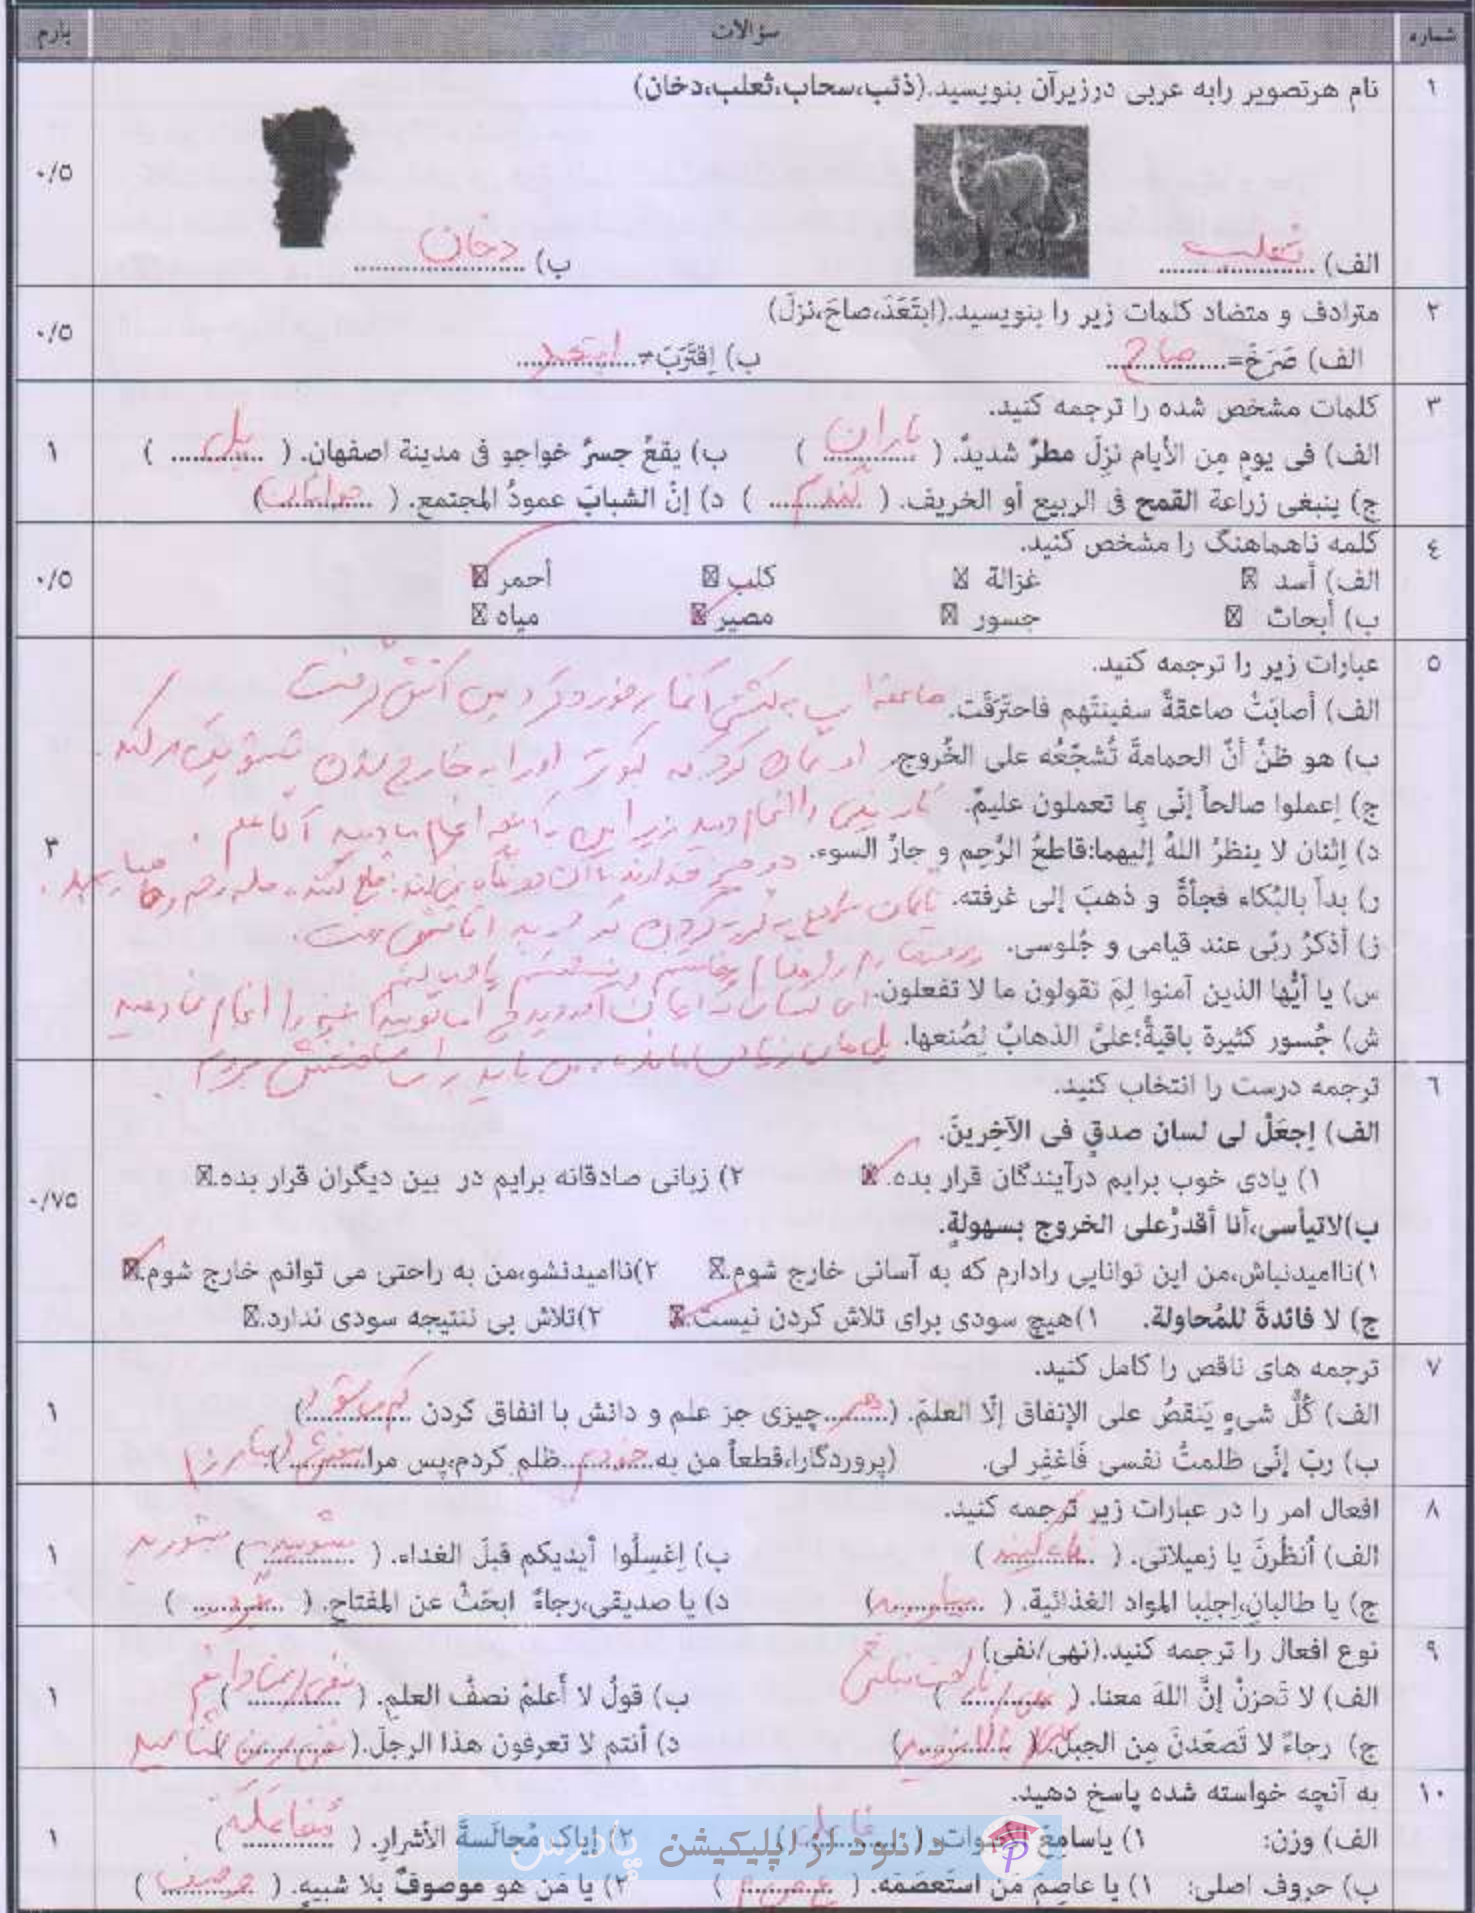 شماره سؤالات بارم
۱ نام هرتصویر رابه عربی درزیرآن بنویسید.(ذئب،سحاب،ثعلب،دخان)
۰/۵
الف) ثعلب ب) دخان
۲ مترادف و متضاد کلمات زیر را بنویسید.(ابتَعَدَ،صاحَ،نزلَ)
۰/۵
الف) صَرَخَ=صاح ب) اِقتَرَبَ≠ابتعد
۳ کلمات مشخص شده را ترجمه کنید.
الف) فی یومٍ مِن الأیام نزِلَ مطرٌ شدیدٌ. ( باران ) ب) یقعُ جسرُ خواجو فی مدینة اصفهان. ( پل ) ۱
ج) ینبغی زراعة القمح فی الربیع أو الخریف. ( گندم ) د) إنّ الشبابَ عمودُ المجتمع. ( جوانان )
٤ کلمه ناهماهنگ را مشخص کنید.
الف) أسد ☒ غزالة ☒ کلب ☒ أحمر ☒ ۰/۵
ب) أبحاث ☒ جسور ☒ مصیر ☒ میاه ☒
۵ عبارات زیر را ترجمه کنید.
الف) أصابَتْ صاعقةٌ سفینتَهم فاحتَرَقَت. صاعقه ای به کشتی آنها برخورد کرد پس آتش گرفت
ب) هو ظنَّ أنَّ الحمامةَ تُشجّعُه علی الخُروجِ. او گمان کرد که کبوتر او را به خارج شدن تشویق می کند.
ج) اِعملوا صالحاً إنّی بِما تعملون علیمٌ. کار نیک را انجام دهید زیرا من به آنچه انجام می دهید آگاهم.
د) اِثنان لا ینظرُ اللهُ إلیهما:قاطعُ الرَّحِم و جارُ السوء. ۳
ر) بدأ بالبُکاء فجأةً و ذهبَ إلی غرفته. ناگهان شروع به گریه کردن کرد و به اتاقش رفت.
ز) أذکرُ ربّی عند قیامی و جُلوسی.
س) یا أیُّها الذین آمنوا لِمَ تقولون ما لا تفعلون.
ش) جُسور کثیرة باقیةٌ؛علیَّ الذهابُ لِصُنعها.
٦ ترجمه درست را انتخاب کنید.
الف) اِجعَلْ لی لسان صدقٍ فی الآخِرینَ.
۱) یادی خوب برایم درآیندگان قرار بده. ☒ ۲) زبانی صادقانه برایم در بین دیگران قرار بده.☒
۰/۷۵
ب)لاتیأسی،أنا أقدرُعلی الخروج بسهولةٍ.
۱)ناامیدنباش،من این توانایی رادارم که به آسانی خارج شوم.☒ ۲)ناامیدنشو،من به راحتی می توانم خارج شوم.☒
ج) لا فائدةَ للمُحاولة. ۱)هیچ سودی برای تلاش کردن نیست.☒ ۲)تلاش بی ننتیجه سودی ندارد.☒
۷ ترجمه های ناقص را کامل کنید.
الف) کُلُّ شیءٍ یَنقصُ علی الإنفاق إلّا العلمَ. (هر چیزی جز علم و دانش با انفاق کردن کم می شود) ۱
ب) ربّ إنّی ظلمتُ نفسی فَاغفِر لی. (پروردگارا،قطعاً من به خودم ظلم کردم،پس مرا ).
۸ افعال امر را در عبارات زیر ترجمه کنید.
الف) اُنظُرنَ یا زمیلاتی. ( نگاه کنید ) ب) اِغسِلُوا أیدیکم قبلَ الغداء. ( بشویید ) ۱
ج) یا طالبانِ،اِجلِبا المواد الغذائیة. ( بیاورید ) د) یا صدیقی،رجاءً ابحَثْ عن المفتاح. ( )
۹ نوع افعال را ترجمه کنید.(نهی/نفی)
الف) لا تَحزنْ إنَّ اللهَ معنا. ( نهی/ ناراحت نباش ) ب) قولُ لا أَعلمُ نصفُ العلمِ. ( نفی/نمی دانم ) ۱
ج) رجاءً لا تَصعَدنَ مِن الجبل. ( ) د) أنتم لا تعرفون هذا الرجلَ.( نفی/نمی شناسید )
۱۰ به آنچه خواسته شده پاسخ دهید.
الف) وزن: ۱) یاسامِع الأصوات. ( فاعل ) ۲) إیاکِ مُجالَسةَ الأشرارِ. ( مُفاعَلَة ) ۱
دانلود از اپلیکیشن پادرس
ب) حروف اصلی: ۱) یا عاصِمَ مَن استَعصَمَه. ( ع ص م ) ۲) یا مَن هو موصوفٌ بلا شبیهٍ. ( و ص ف )